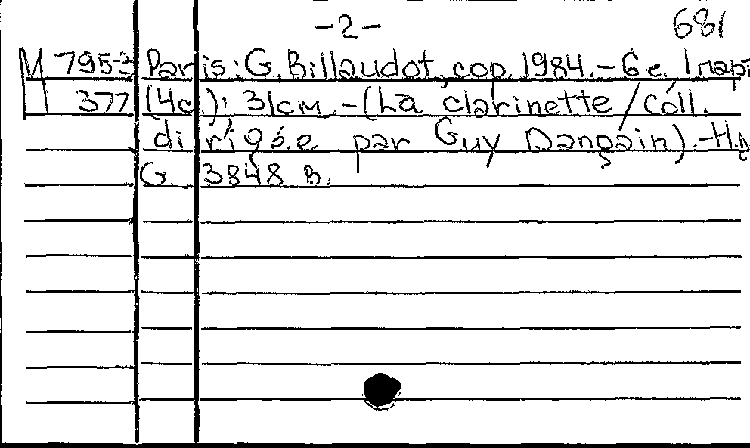 -2- 681
М 7953 Paris: G. Billaudot, cop. 1984.-6 c.
П 377 (4c.); 31см.-(La clarinette / coll.
dirigée par Guy Dangain).-Н.д.
G 3848 B.